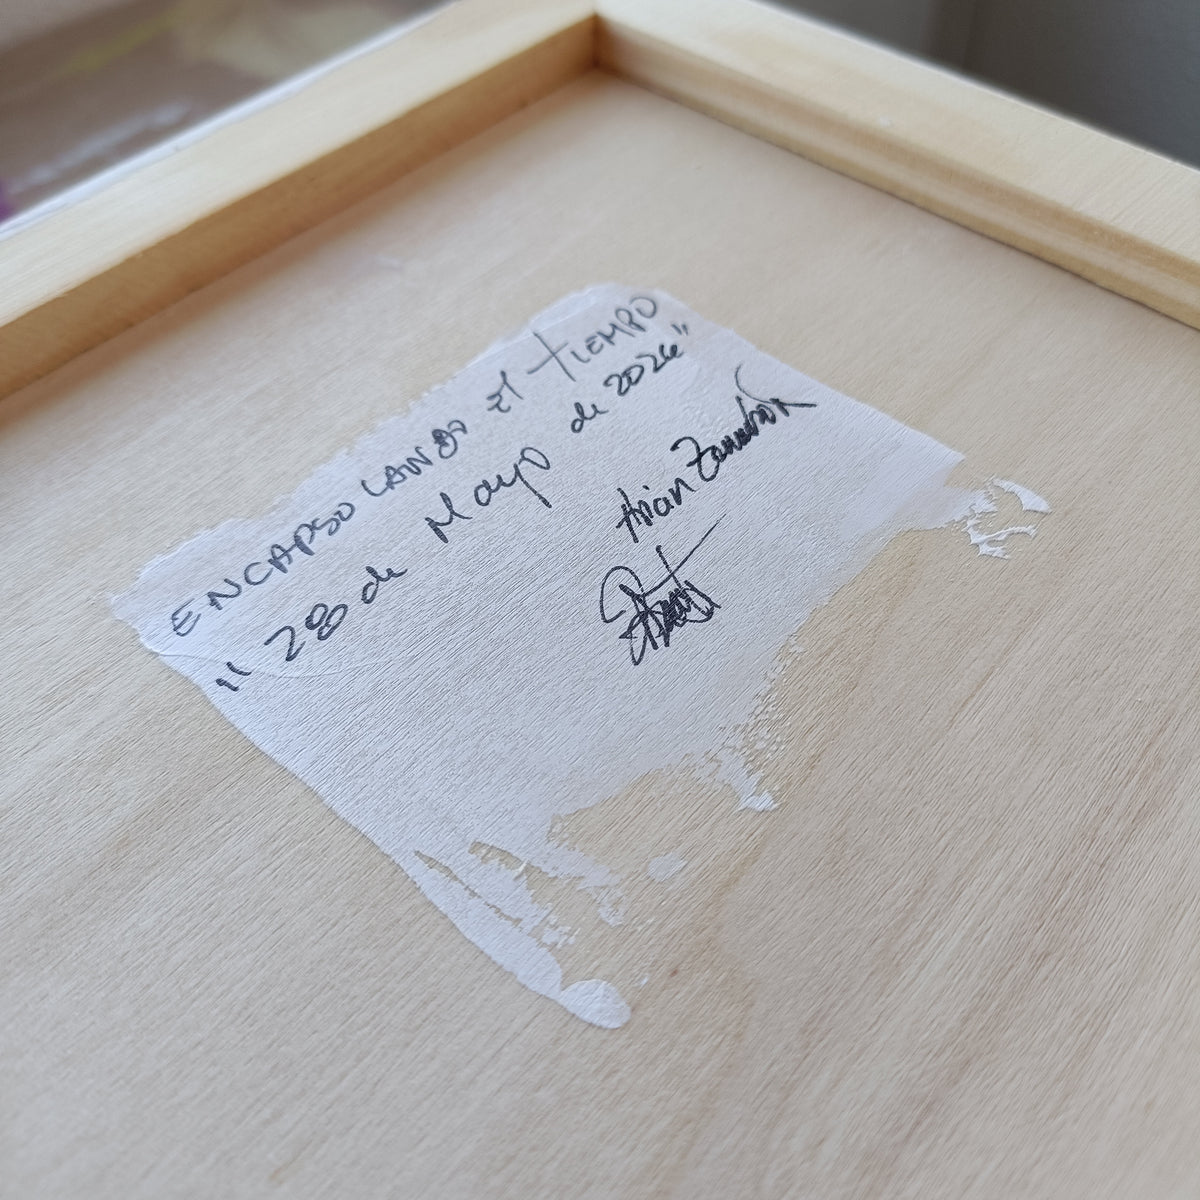 ENCAPSULANDO El TIEMPO
"28 de Mayo de 2024"